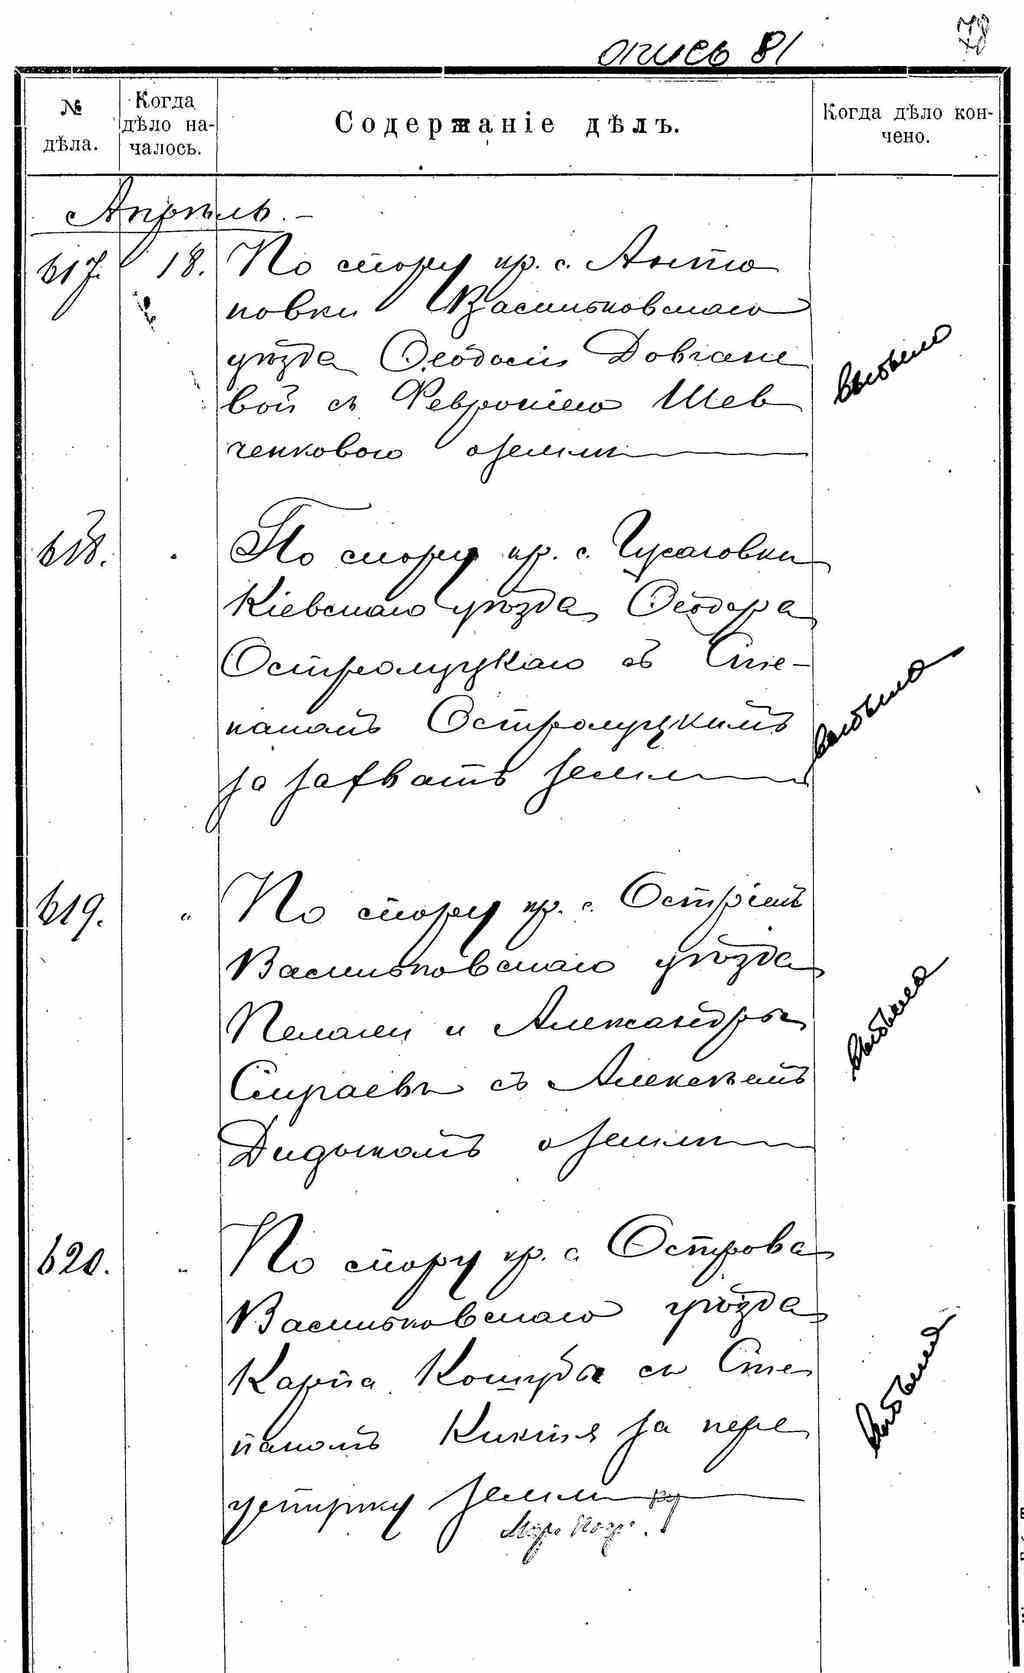 опись 81
78
№ дѣла.
Когда дѣло началось.
Содержаніе дѣлъ.
Когда дѣло кончено.
Апрѣль.
617. 18. По спору кр. с. Анто
новки Васильковскаго
уѣзда Ѳеодосіи Довгане
вой съ Февроніею Шев
ченковою о землѣ
выбыло
618. " По спору кр. с.
Кіевскаго уѣзда Ѳеодора
Остролуцкаго съ Сте-
паномъ Остролуцкимъ
за захватъ земли
выбыло
619. " По спору кр. с.
Васильковскаго уѣзда
Пелагеи и Александры
съ Алексѣемъ
Дидыкомъ о землѣ
выбыло
620. " По спору кр. с. Острова
Васильковскаго уѣзда
Карпа Кошубы съ Сте
паномъ за пере
земли
выбыло